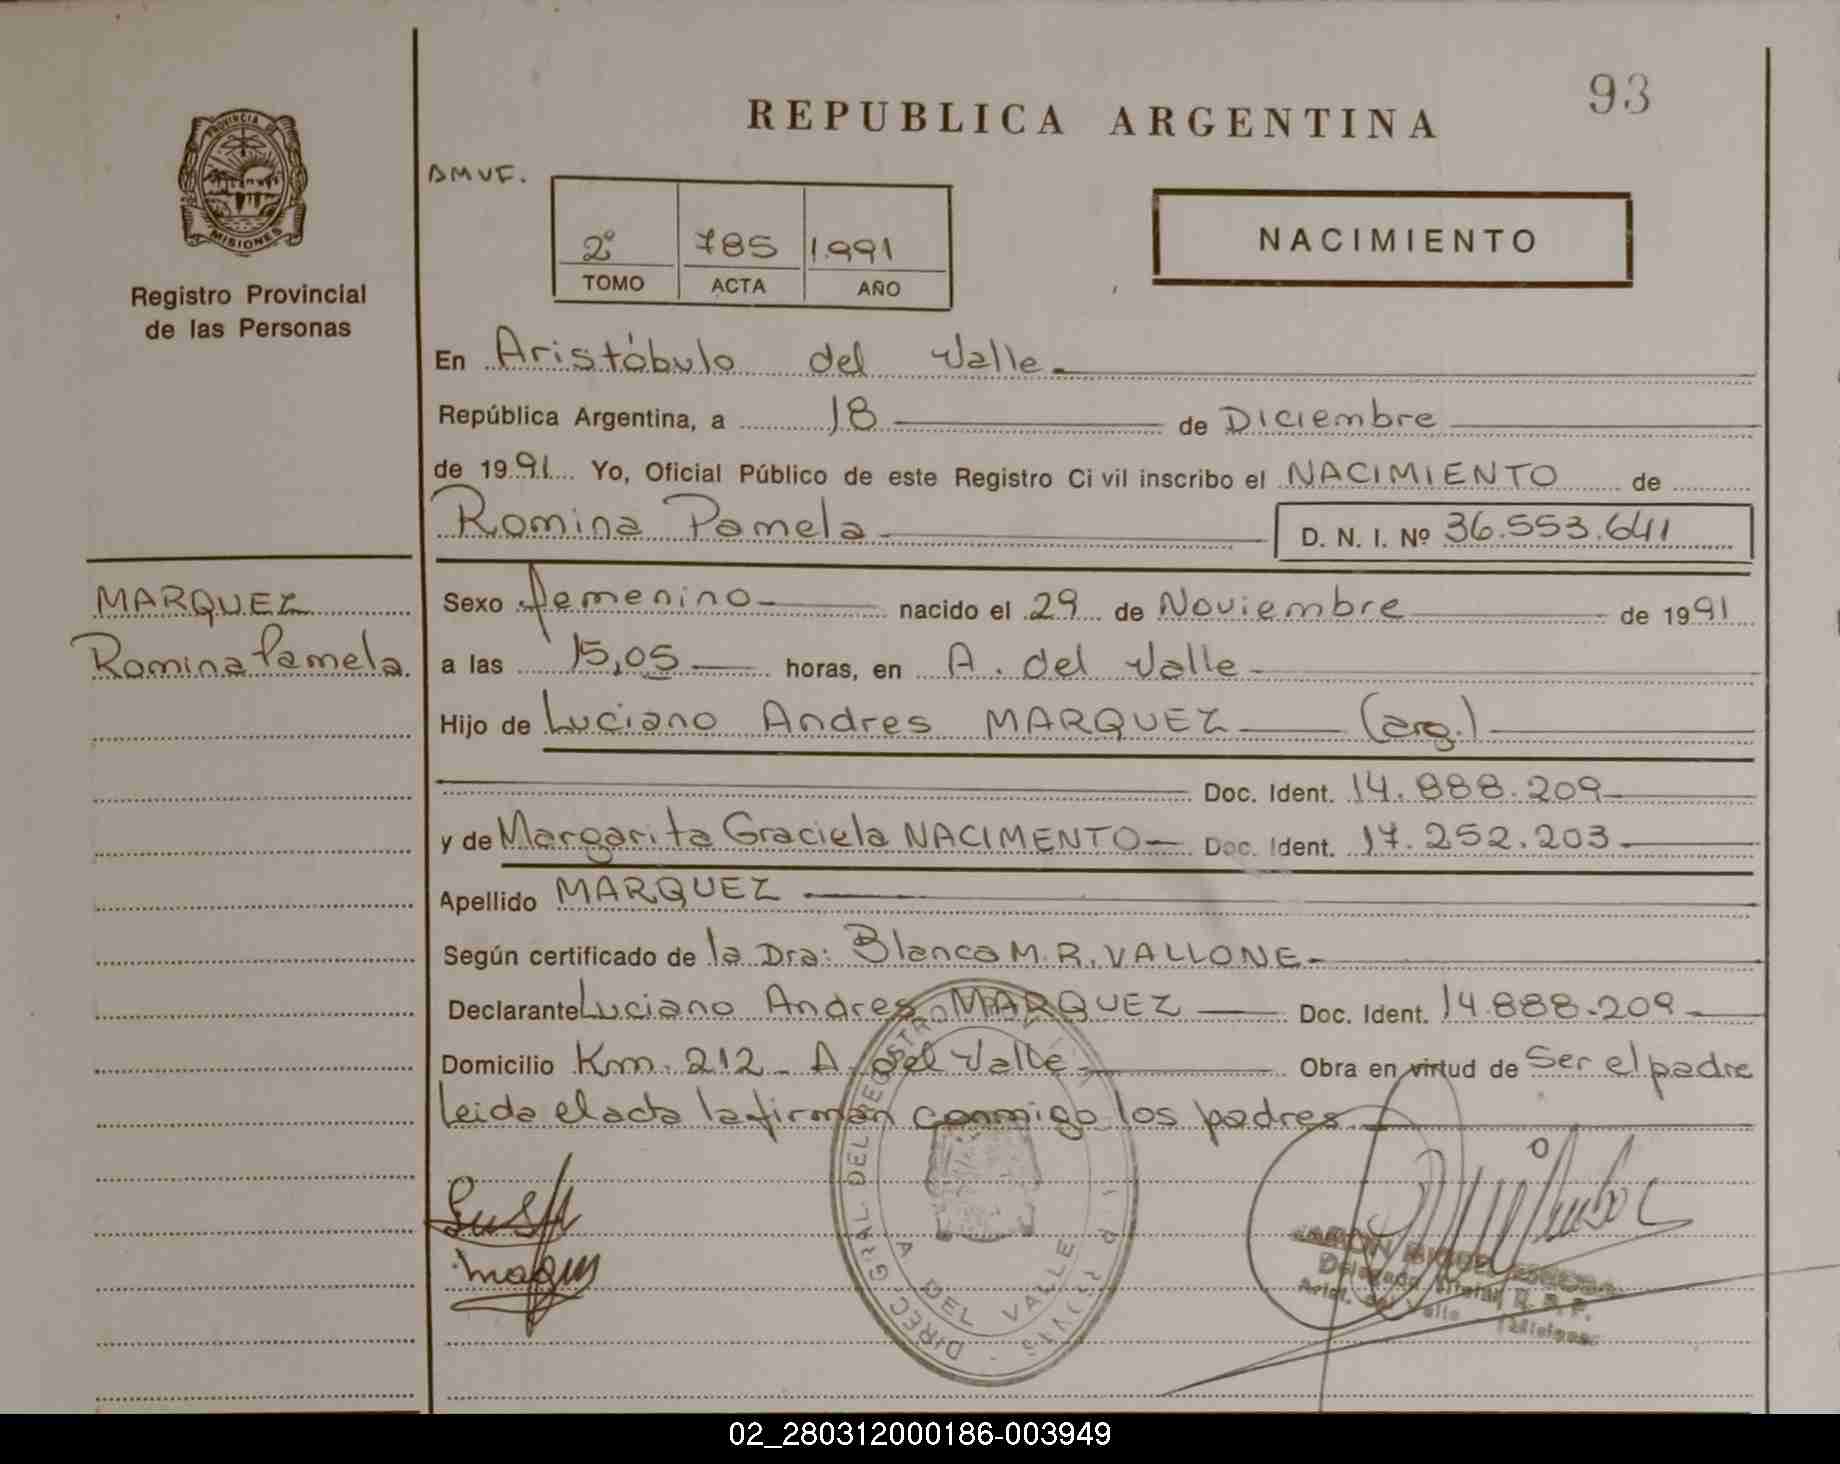 93
REPUBLICA ARGENTINA
PROVINCIA DE
MISIONES
Registro Provincial
de las Personas
2º 785 1.991
TOMO ACTA AÑO
NACIMIENTO
En Aristóbulo del Valle
República Argentina, a 18 de Diciembre
de 1991 Yo, Oficial Público de este Registro Civil inscribo el NACIMIENTO de
Romina Pamela D. N. I. Nº 36.553.641
MARQUEZ
Romina Pamela.
Sexo femenino nacido el 29 de Noviembre de 1991
a las 15,05 horas, en A. del Valle
Hijo de Luciano Andres MARQUEZ (arg.)
Doc. Ident. 14.888.209
y de Margarita Graciela NACIMENTO Doc. Ident. 17.252.203
Apellido MARQUEZ
Según certificado de la Dra: Blanca M. R. VALLONE
Declarante Luciano Andres MARQUEZ Doc. Ident. 14.888.209
Domicilio Km. 212 - A. del Valle Obra en virtud de Ser el padre
Leida el acta la firman conmigo los padres
DIREC. GRAL DEL REGISTRO
A DEL VALLE
Delegado Titular
Arist. del Valle (Misiones)
02_280312000186-003949